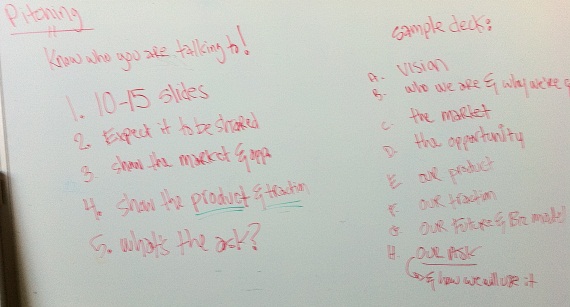 Pitching
Know who you are talking to!
1. 10-15 slides
2. Expect it to be shared
3. show the market & opp
4. show the product & traction
5. what's the ask?
sample deck:
A- Vision
B- who we are & why we're
C. the market
D. the opportunity
E. our product
F. our traction
G. our future & Biz model
H. our ask
& how we will use it